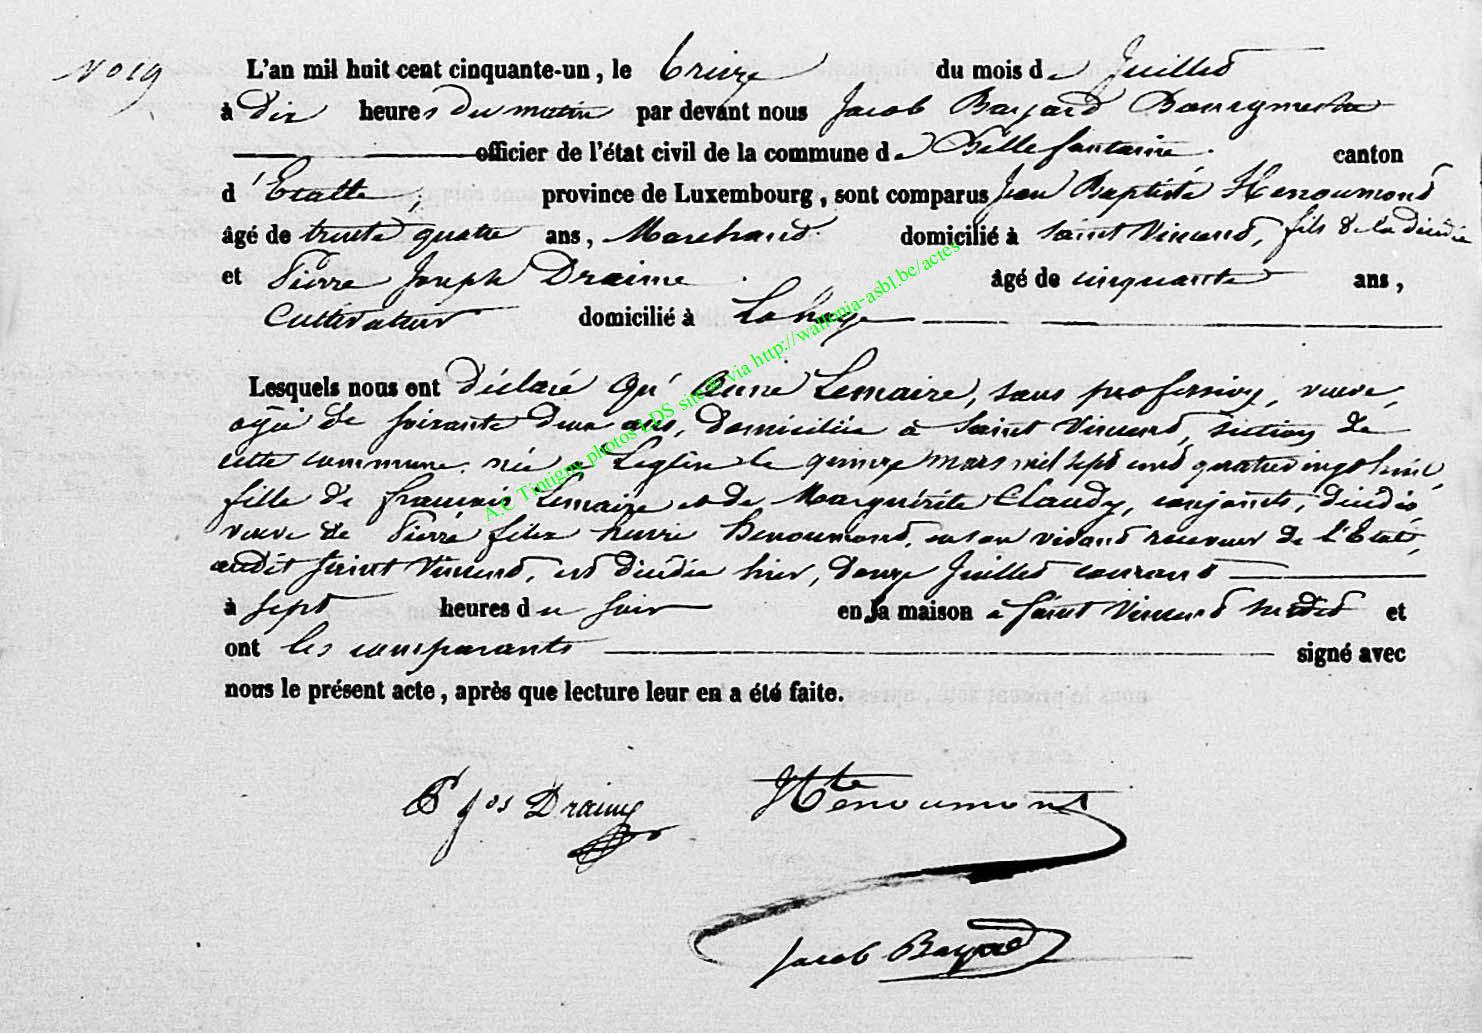 N° 19
L'an mil huit cent cinquante-un, le treize du mois de Juillet
à dix heures du matin par devant nous Jacob Bayard Bourgmestre
officier de l'état civil de la commune de Bellefontaine. canton
d'Etalle, province de Luxembourg, sont comparus Jean Baptiste Henoumont
âgé de trente quatre ans, Marchand. domicilié à Saint Vincent, fils de la décédée
et Pierre Joseph Draime âgé de cinquante ans,
Cultivateur domicilié à Lahage
Lesquels nous ont déclaré qu'Anne Lemaire, sans profession, veuve,
agée de soixante deux ans, domiciliée à Saint Vincent, section de
cette commune. née à Leglise le quinze mars mil sept cent quatrevingt huit,
fille de francois Lemaire et de Marguerite Claudy, conjoints, décédés,
veuve de Pierre felix henri henoumont, en son vivant receveur de l'Etat,
audit Saint Vincent, est décédée hier, douze Juillet courant
à sept heures du soir en sa maison à Saint Vincent susdit et
ont les comparants signé avec
nous le présent acte, après que lecture leur en a été faite.
A.C Tintigny photos LDS site de via http://wallonia-asbl.be/actes
P jos Draime Hte henoumont
Jacob Bayard